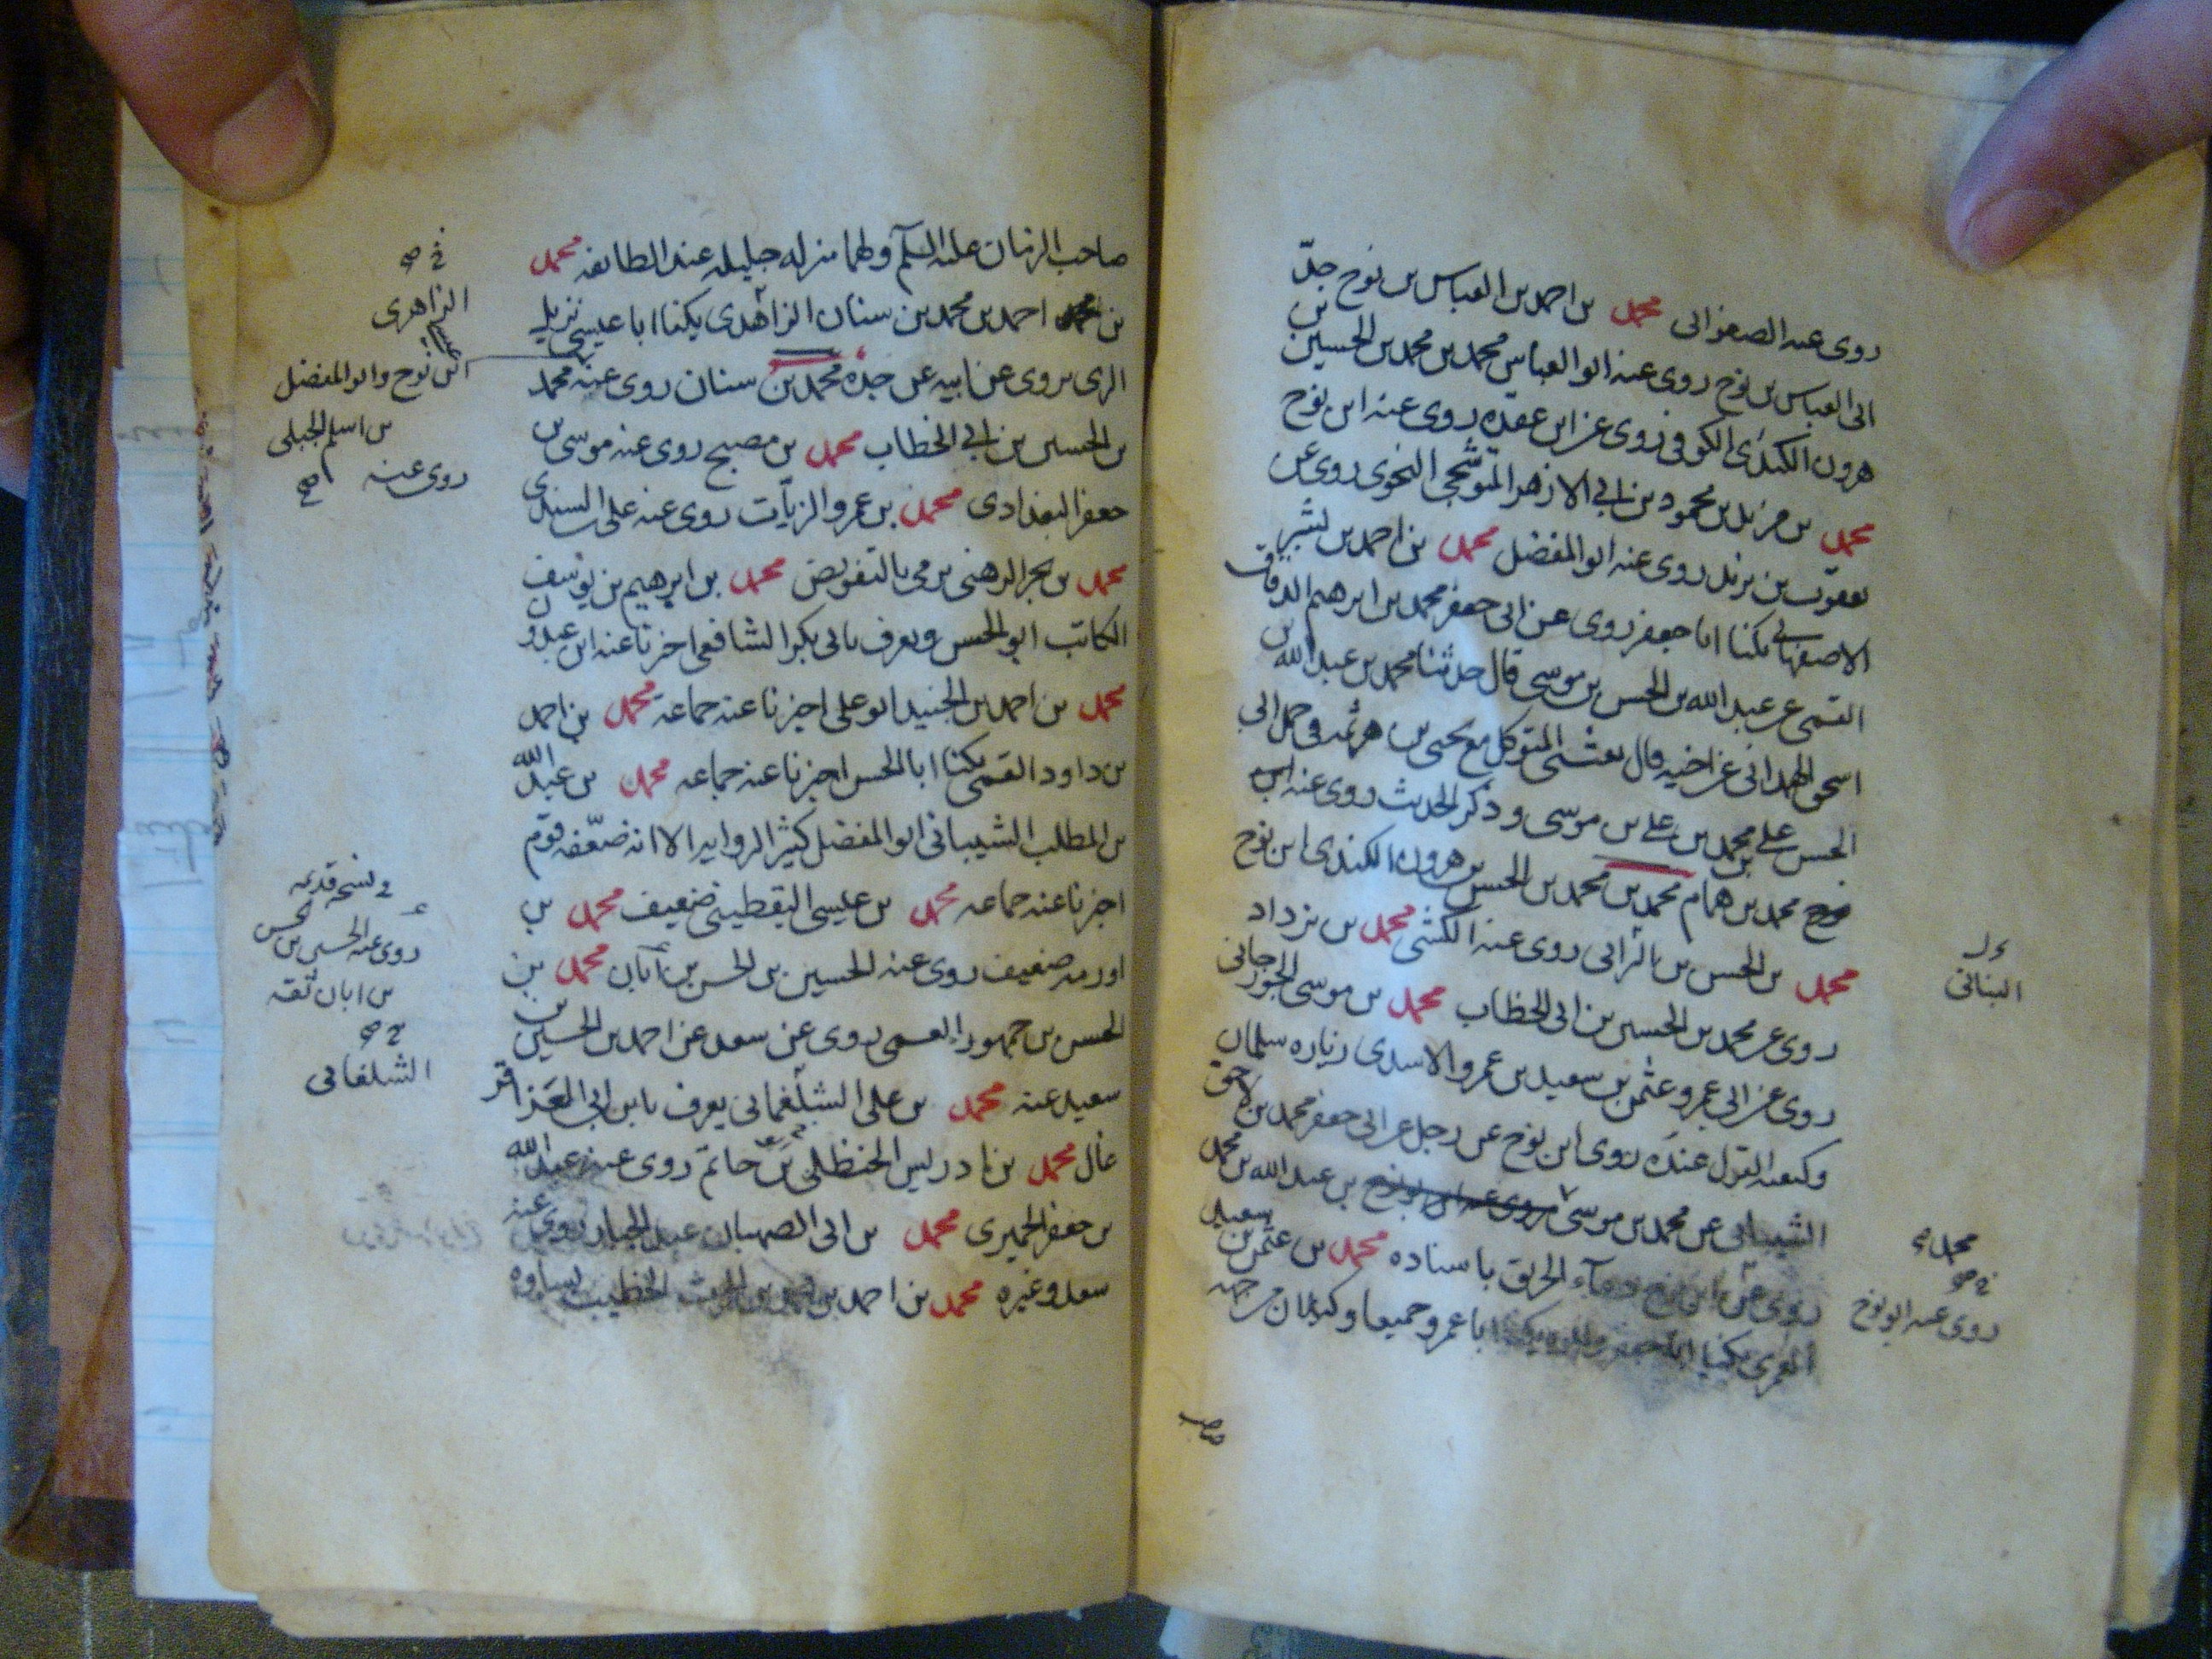 روى عنه الصفوانى محمد بن احمد بن العباس بن نوح جدّ
ابى العباس بن نوح روى عنه ابو العباس محمد بن محمد بن الحسين بن
هرون الكندى الكوفى روى عن ابن عقده روى عنه ابن نوح
محمد بن مزيد بن محمود بن ابى الازهر البوشنجى النحوى روى عن
يعقوب بن يزيد روى عنه ابو المفضل محمد بن احمد بن بشير
الاصفهانى يكنا ابا جعفر روى عن ابى جعفر محمد بن ابرهيم الدقاق
القمى عن عبد الله بن الحسن بن موسى قال حدثنا محمد بن عبد الله بن
اسحق الهدانى عن اخيه قال بعثنى المتوكل مع يحيى بن هرثمه فى حمل ابى
الحسن على بن محمد بن على بن موسى وذكر الحديث روى عنه ابن
نوح محمد بن همام محمد بن محمد بن الحسين بن هرون الكندى ابن نوح
محمد بن الحسن بن البرانى روى عنه الكشى محمد بن يزداد
روى عن محمد بن الحسين بن ابى الخطاب محمد بن موسى الجورجانى
روى عن ابى عمرو عثمن بن سعيد بن عمرو الاسدى زياره سلمان
وكيفيه القول عنده روى ابن نوح عن رجل عن ابى جعفر محمد بن لاحق
الشيبانى عن محمد بن موسى بن عبد الله بن محمد
روى عن ابن نوح دعآء الحريق باسناده محمد بن عثمن بن سعيد
العمرى يكنا ابا جعفر وابوه يكنا ابا عمرو جميعا وكيلان من جهه
صاحب
البنانى
محمد
روى عنه ابو نوح
صاحب الزمان عليه السلم ولهما منزله جليله عند الطائفه محمد
بن احمد بن محمد بن سنان الزاهدى يكنا ابا عيسى نزيل
الرى يروى عن ابيه عن جده محمد بن سنان روى عنه محمد
بن الحسين بن ابى الخطاب محمد بن مصبح روى عنه موسى بن
جعفر البغدادى محمد بن عمرو الزيات روى عنه على السندى
محمد بن بحر الرهنى يرمى بالتفويض محمد بن ابرهيم بن يوسف
الكاتب ابو الحسن ويعرف بابى بكر الشافعى اخبرنا عنه ابن عبدون
محمد بن احمد بن الجنيد ابو على اخبرنا عنه جماعه محمد بن احمد
بن داود القمى يكنا ابا الحسن اخبرنا عنه جماعه محمد بن عبد الله
بن المطلب الشيبانى ابو المفضل كثير الروايه الا انه ضعّفه قوم
اخبرنا عنه جماعه محمد بن عيسى اليقطينى ضعيف محمد بن
اورمه ضعيف روى عنه الحسين بن الحسن بن ابان محمد بن
الحسن بن جمهور العمى روى عن سعد عن احمد بن الحسين بن
سعيد عنه محمد بن على الشلغمانى يعرف بابن ابى العزاقر
غال محمد بن ادريس الحنظلى بن حاتم روى عنه عبد الله
بن جعفر الحميرى محمد بن ابى الصهبان عبد الجبار روى عنه
سعد وغيره محمد بن احمد بن الحرث الخطيب بساوه
الزاهرى
ابن نوح وابو المفضل
بن اسلم الجبلى
روى عنه
فى نسخه قديمه
روى عنه الحسين بن الحسن
بن ابان ثقه
الشلغانى